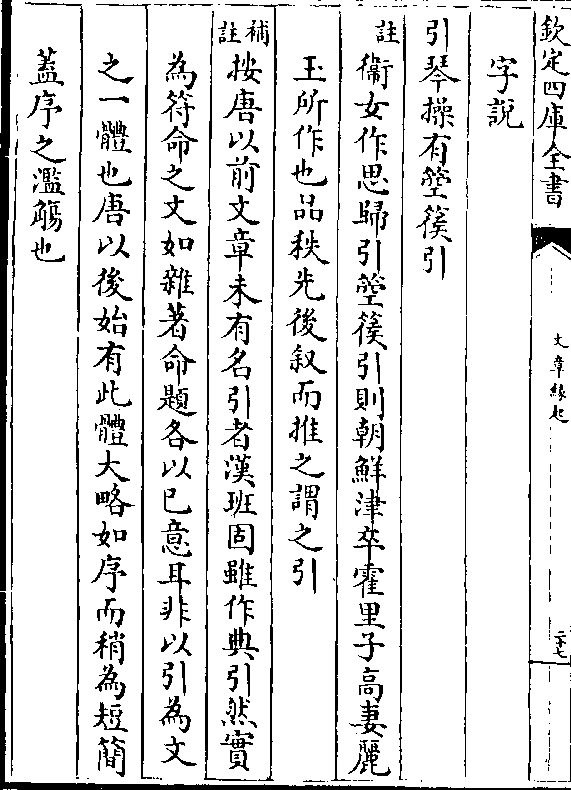 欽定四庫全書
文章緣起
二十七
字說
引琴操有箜篌引
註衞女作思歸引箜篌引則朝鮮津卒霍里子高妻麗
玉所作也品秩先後叙而推之謂之引
補註按唐以前文章未有名引者漢班固雖作典引然實
為符命之文如雜著命題各以已意耳非以引為文
之一體也唐以後始有此體大略如序而稍為短簡
蓋序之濫觴也